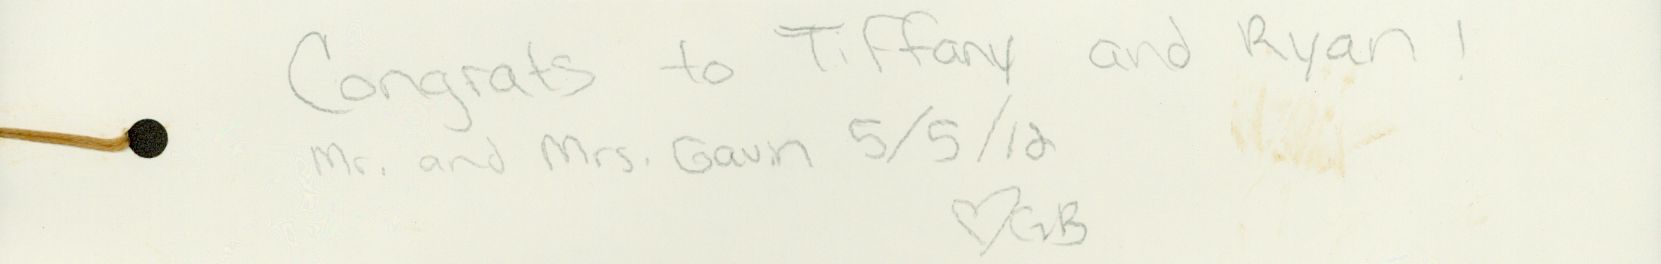 Congrats to Tiffany and Ryan!
Mr. and Mrs. Gavin 5/5/12
♡GB